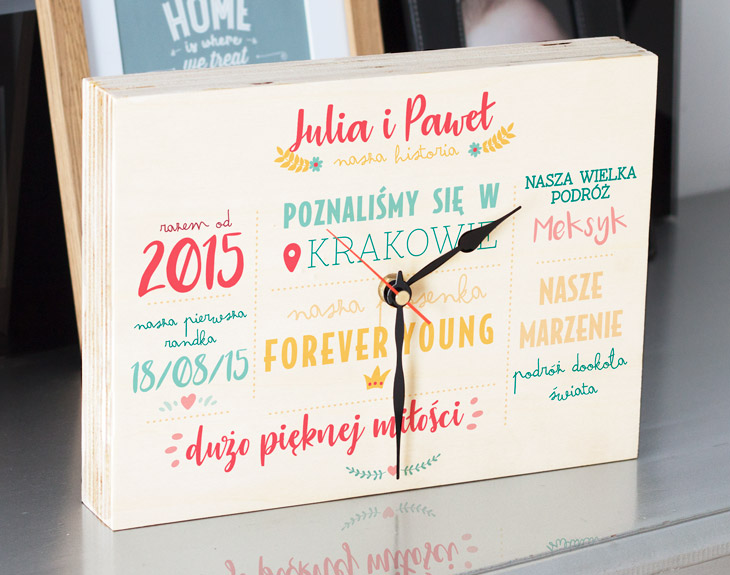 HOME
is where
we treat
Julia i Paweł
nasza historia
razem od
2015
nasza pierwsza
randka
18/08/15
POZNALIŚMY SIĘ W
KRAKOWIE
nasza piosenka
FOREVER YOUNG
NASZA WIELKA
PODRÓŻ
Meksyk
NASZE
MARZENIE
podróż dookoła
świata
dużo pięknej miłości